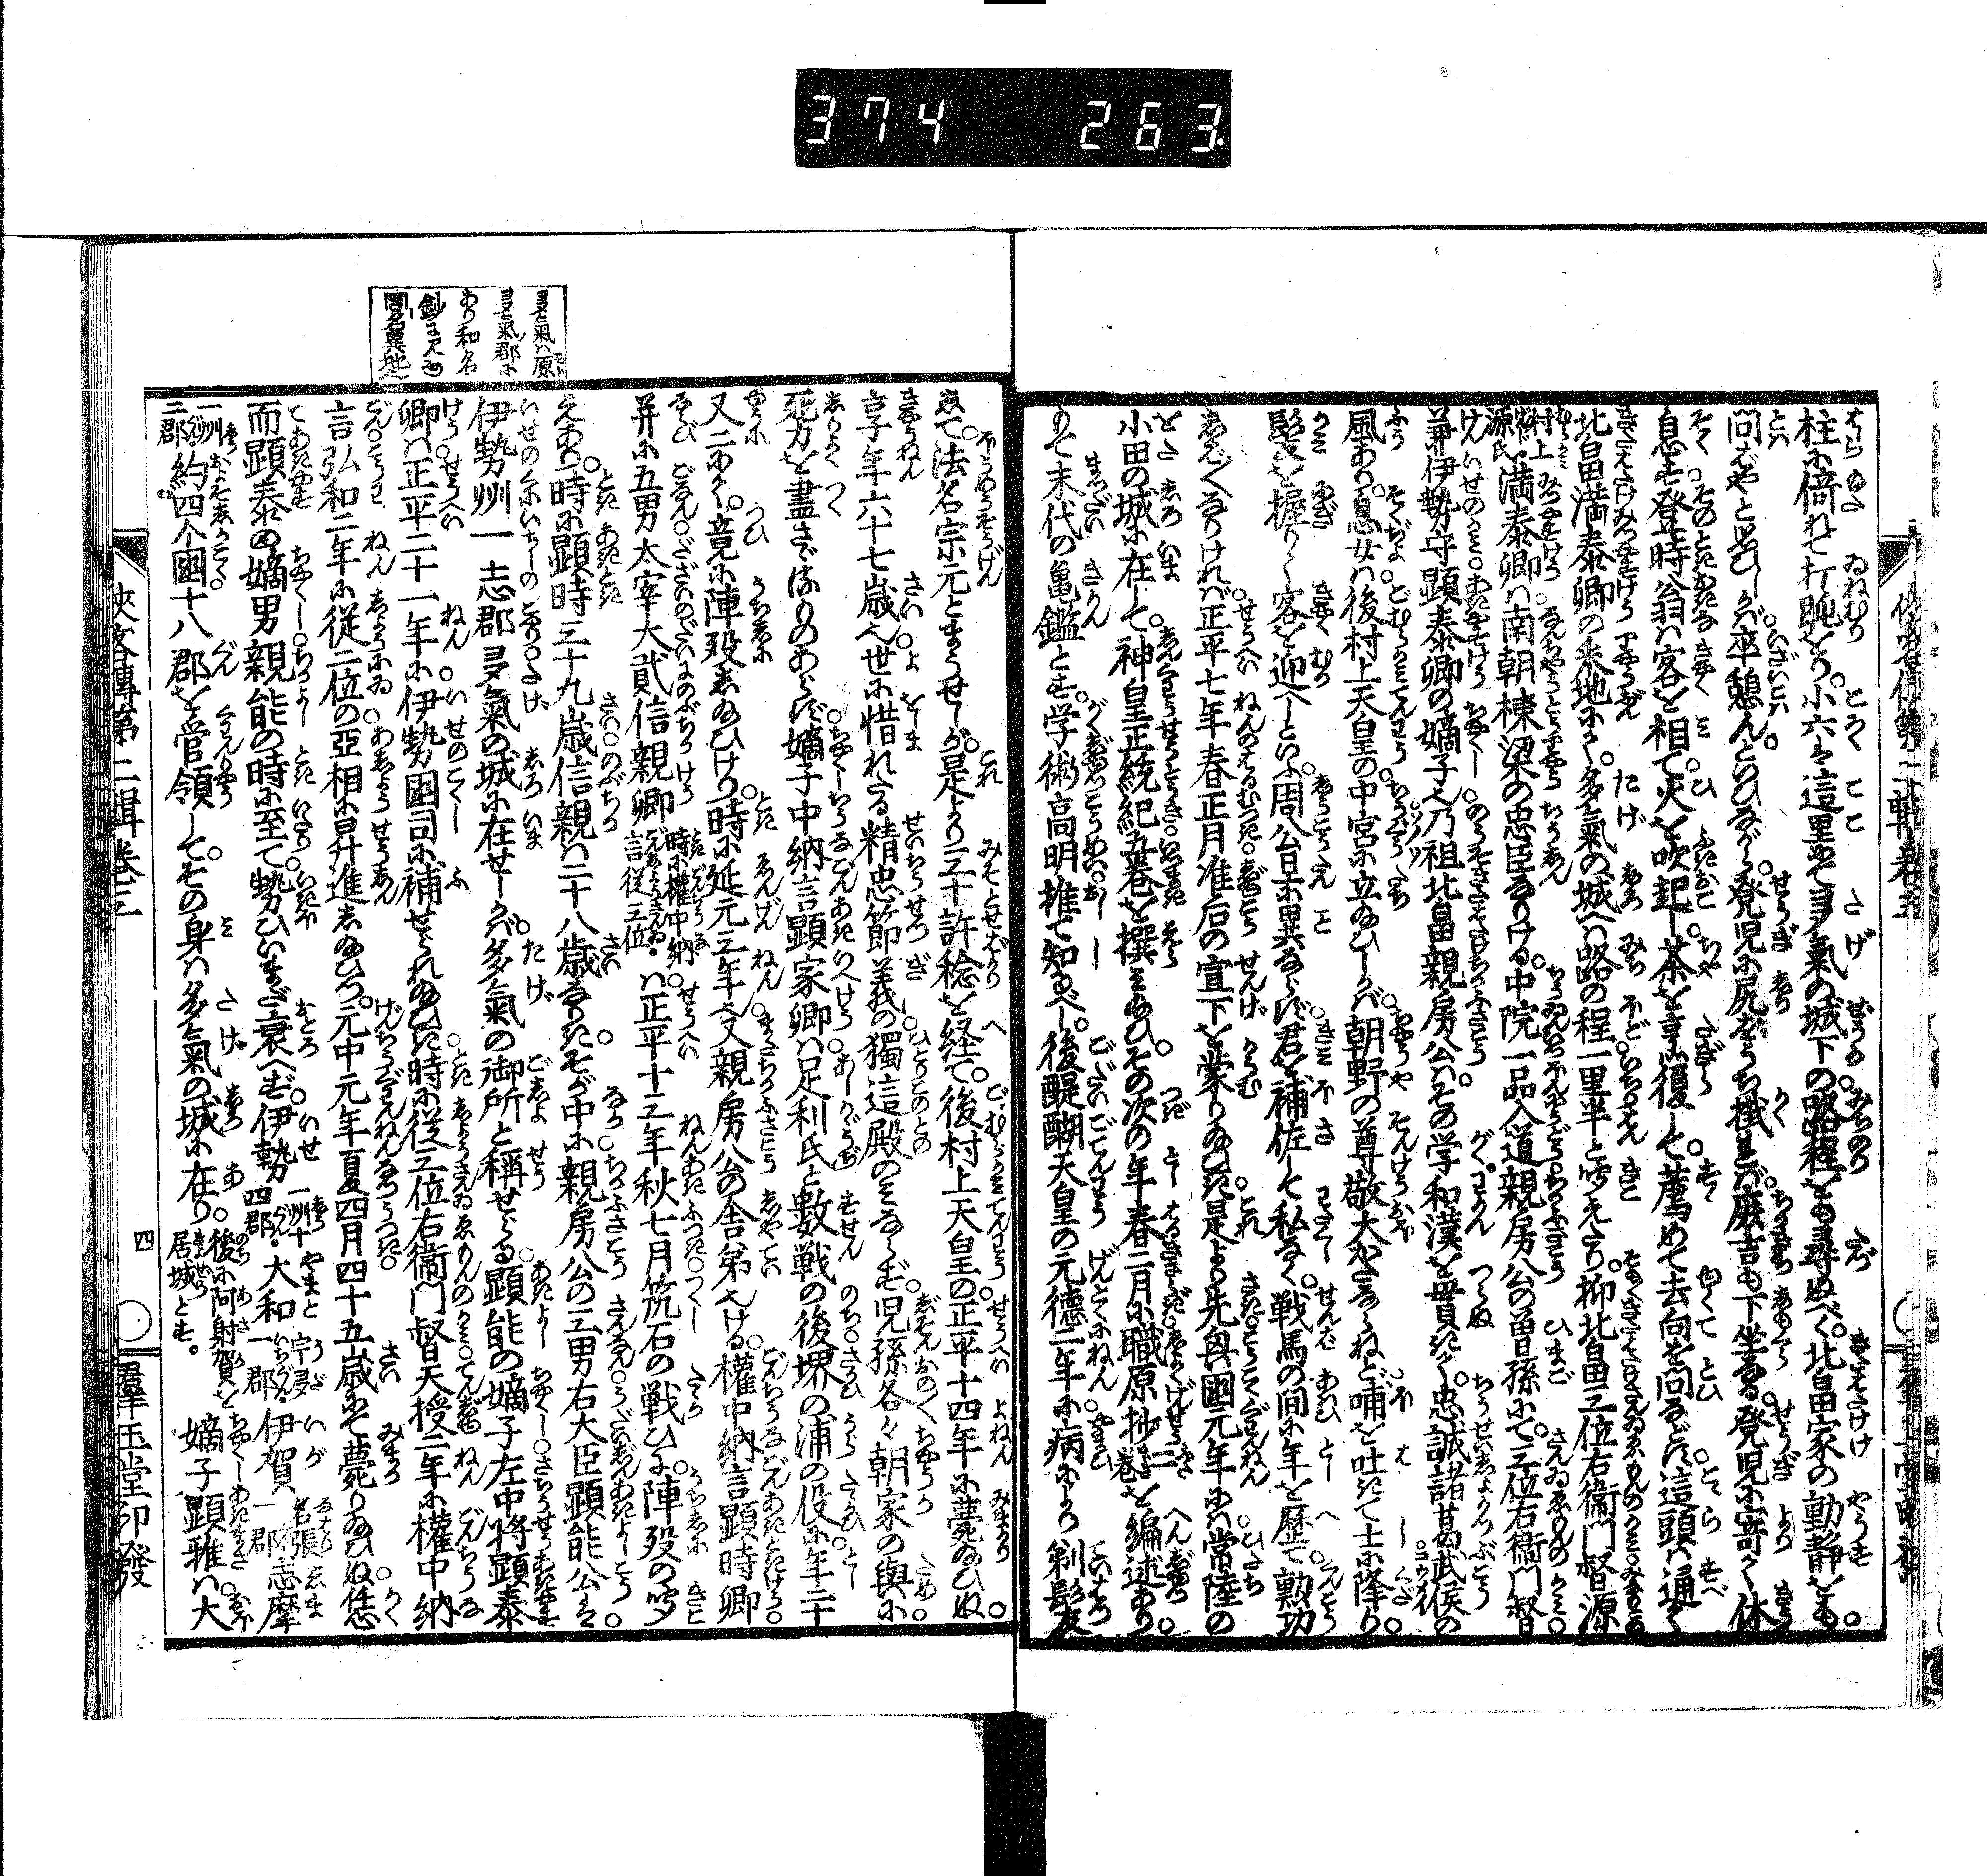 374 263
柱に倚れて打眠をり。小六は這里にて多氣の城下の路程をも尋ぬべく。北畠家の動静をも。
問ばやと思ひしが。卒憩んといひながら。登児に尻をうち掛れば。厳吉も下坐なる。登児に寄りて休
息す。登時翁は客を相て。火を吹起し。茶を享復して。薦めて去向を問るに。這頭は通て
北畠満泰卿の采地にて。多氣の城へは路の程一里半と聞えたり。抑北畠三位右衛門督源
村上源氏
満泰卿は。南朝棟梁の忠臣なりける。中院一品入道親房公の曾孫にて。三位右衛門督
兼伊勢守顕泰卿の嫡子也。乃祖北畠親房公は。その学和漢を毌貫き。忠誠諸葛武侯の
風あり。息女は後村上天皇の中宮に立給ひしかば。朝野の尊敬大かたならねど。哺を吐きて士に降り。
髪を握りて客を迎へしといふ。周公旦に異ならず。君を補佐して私なく。戦馬の間に年を歴て。勲功
しば〱なりければ。正平七年春正月。准后の宣下を蒙り給ひき。是より先。興国元年には。常陸の
小田の城に在して。神皇正統紀五巻を撰み給ひ。その次の年春二月に。職原抄二巻を編述あり。
もて末代の亀鑑とす。学術高明推て知るべし。後醍醐天皇の元徳二年に。病によりて剃髪
して。法名宗元とまうせしが。是より三十許稔を経て。後村上天皇の。正平十四年に薨給ひぬ。
享年六十七歳也。世に惜れたる精忠節義の。獨這殿のみならず。児孫各々朝家の與に。
死力を盡さゞるものあらず。嫡子中納言顕家卿は。足利氏と數戦の後。堺の浦の役に。年二十
又二にて。竟に陣歿し給ひけり。時に延元三年也。又親房公の舎弟也ける。權中納言顕時卿。
并に五男太宰大貳信親卿
時に權中納言従三位
は。正平十三年秋七月。筑石の戦ひに。陣歿の聞
えあり。時に顕時三十九歳。信親は二十八歳なりき。そが中に。親房公の三男。右大臣顕能公は。
伊勢州一志郡。多氣の城に在せしかば。多氣の御所と稱せらる。顕能の嫡子。左中将顕泰
卿は。正平二十一年に。伊勢国司に補せられ給ひき。時に従三位右衛門督。天授二年に。權中納
言。弘和二年に。従二位の亞相に昇進し給ひつ。元中元年夏四月。四十五歳にて薨り給ひぬ。恁
而顕泰の嫡男。親能の時に至て。勢ひいまだ衰へず。伊勢
一州十四郡
大和
宇陀一郡
伊賀
名張一郡
志摩
一州二郡
約四个国十八郡を管領して。その身は多氣の城に在り。
後に阿射賀を居城とす。
嫡子顕雅は大
多氣は原
多氣郡に
あり和名
鈔に見ゆ
同名異地也
侠客傳第二輯巻三
四
羣玉堂印發